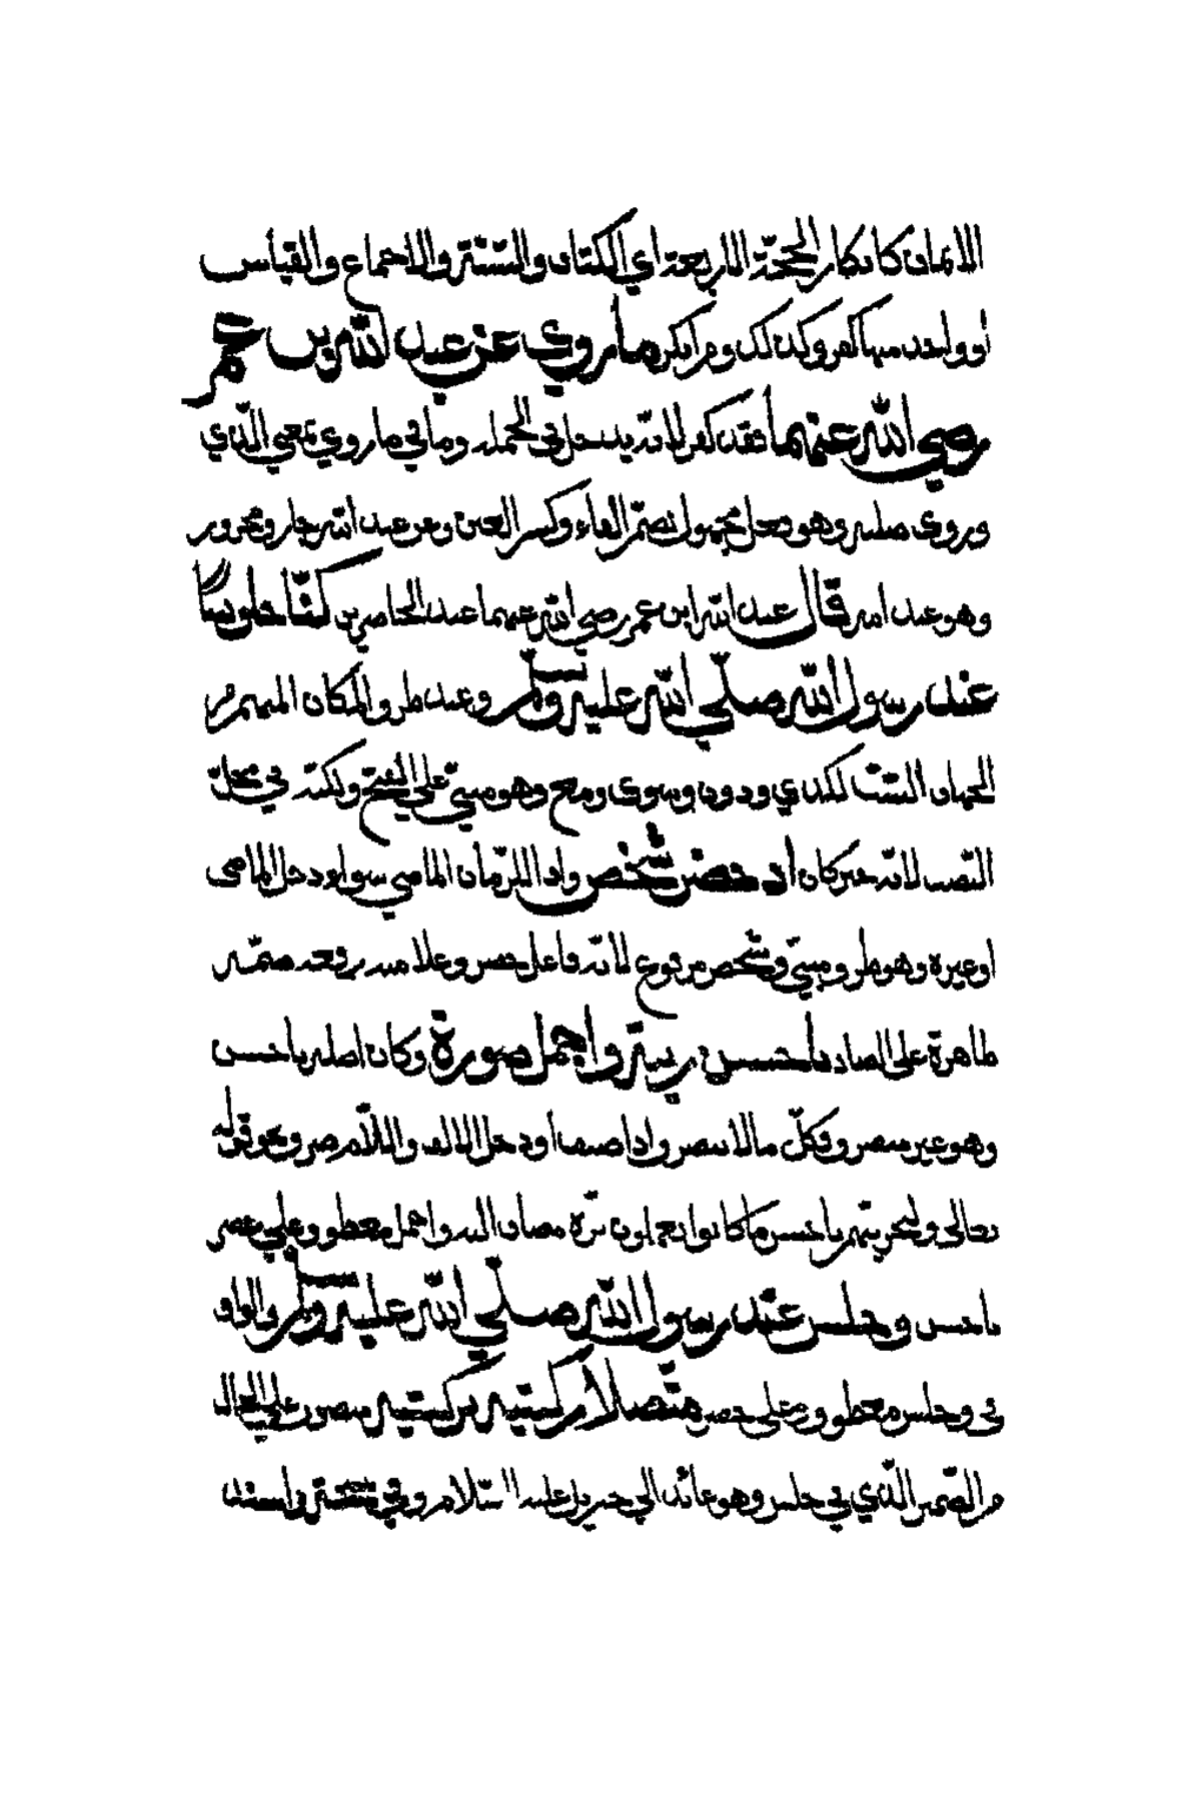 الايمان كانكار الحجة الاربعة اي الكتاب والسنة والاجماع والقياس
او واحد منها كفر وكذلك ومن انكر ما روي عن عبد الله بن عمر
رضي الله عنهما فقد كفر لانه يدخل في الجملة وما في ما روي بمعني الذي
وروي صلته وهو فعل مجهول بضم الفاء وكسر العين وعن عبد الله جار ومجرور
وهو عبد امه قال عبد الله ابن عمر رضي الله عنهما عند الحاضرين كنا جلوسا
عند رسول الله صلي الله عليه وسلم وعند ظرف المكان المبهم من
الجهات الستة لكدي ودون وسوي ومع وهو مبني علي الفتح ولكنه في محل
النصب لانه خبر كان اذ حضر شخص واذ للزمان الماضي سواء دخل الماضي
او غيره وهو ظرف مبني وشخص مرفوع لانه فاعل حضر وعلامة رفعه ضمة
ظاهرة علي الصاد باحسن زينة واجمل صورة وكان اصله باحسن
وهو غير منصرف وكل ما لا ينصرف اذا اضيف او دخل الالف واللام صرف نحو قوله
تعالي ولنجزينهم باحسن ما كانوا يعملون زنة مضاف اليه واجمل معطوف علي
باحسن وجلس عند رسول الله صلي الله عليه وسلم والواو
في وجلس معطوف علي حضر متصلا ركبتيه بركبتيه منصوب علي الحال
من الضمير الذي في جلس وهو عائد الي جبريل عليه السلام وفي